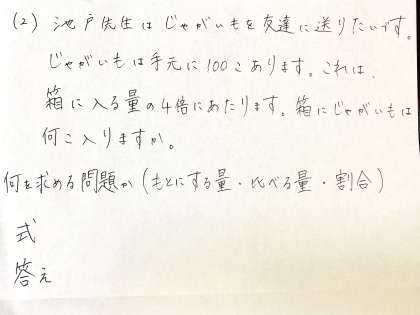 (2) 池戸先生はじゃがいもを友達に送りたいです。
じゃがいもは手元に100こあります。これは、
箱に入る量の4倍にあたります。箱にじゃがいもは
何こ入りますか。
何を求める問題か(もとにする量・比べる量・割合)
式
答え